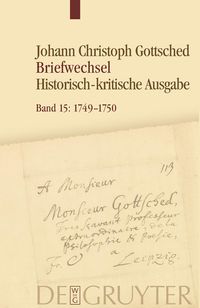 Johann Christoph Gottsched
Briefwechsel
Historisch-kritische Ausgabe
Band 15: 1749–1750
113
A Monsieur
Monsieur Gottsched,
professeur
extraordinaire, de la
Philosophie & Poesie,
à
Leipzig.
DE GRUYTER